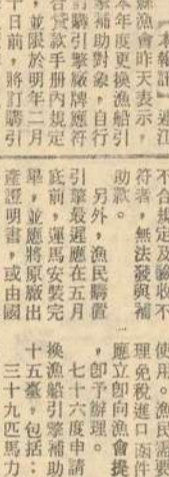 【本報訊】連江
縣漁會昨天表示，
本年度更換漁船引
擎補助對象，自行
購引擎廠牌應符
合貸款手册內規定
，並限於明年二月
十日前，將訂購引
不合規定及驗收不
符者，無法發與補
助款。
另外，漁民購置
引擎最遲應在五月
底前，運馬安裝完
畢，並應將原廠出
產證明書，或由國
使用。漁民需要
理免稅進口函件
應立卽向漁會提
，卽予辦理。
七十六度申請
換漁船引擎補助
十五臺，包括：
三十九匹馬力